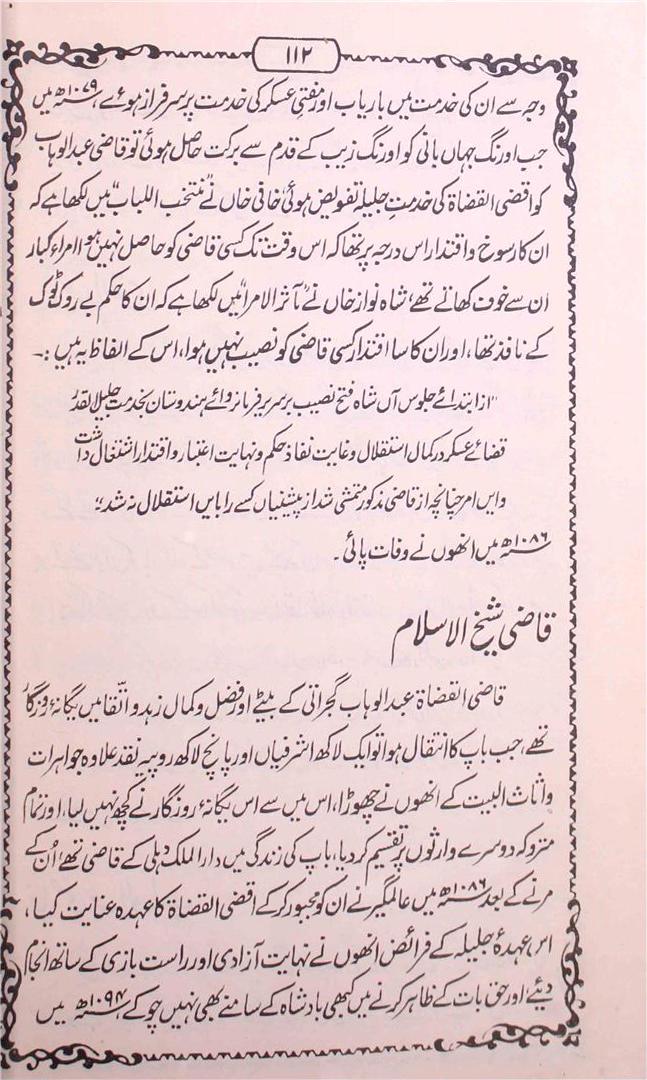 ۱۱۲
وجہ سے ان کی خدمت میں باریاب اور مفتی عسکر کی خدمت پر سرفراز ہوئے، ۱۰۷۹ھ میں
جب اورنگ جہاں بانی کو اورنگ زیب کے قدم سے برکت حاصل ہوئی تو قاضی عبدالوہاب
کو اقضی القضاۃ کی خدمتِ جلیلہ تفویض ہوئی، خافی خاں نے "منتخب اللباب" میں لکھا ہے کہ
ان کا رسوخ و اقتدار اس درجہ پر تھا کہ اس وقت تک کسی قاضی کو حاصل نہیں ہوا امراء کبار
ان سے خوف کھاتے تھے، شاہ نواز خاں نے "مآثر الامرا" میں لکھا ہے کہ ان کا حکم بے روک ٹوک
کے نافذ تھا، اور ان کا سا اقتدار کسی قاضی کو نصیب نہیں ہوا، اس کے الفاظ یہ ہیں :۔
"از ابتدائے جلوس آں شاہ فتح نصیب بر سریر فرمانروائے ہندوستان بخدمت جلیل القدر
قضائے عسکر در کمال استقلال و غایت نفاذ حکم و نہایت اعتبار و اقتدار اشتغال داشت
و ایں امر چنانچہ از قاضی مذکور متمشی شد از پیشینیاں کسے را بایں استقلال نہ شد"
۱۰۸۶ھ میں انھوں نے وفات پائی۔
قاضی شیخ الاسلام
قاضی القضاۃ عبدالوہاب گجراتی کے بیٹے اور فضل و کمال زہد و اتقا میں یگانۂ روزگار
تھے، جب باپ کا انتقال ہوا تو ایک لاکھ اشرفیاں اور پانچ لاکھ روپیہ نقد علاوہ جواہرات
و اثاث البیت کے انھوں نے چھوڑا، اس میں سے اس یگانۂ روزگار نے کچھ نہیں لیا، اور تمام
متروکہ دوسرے وارثوں پر تقسیم کردیا، باپ کی زندگی میں دارالملک دہلی کے قاضی تھے، اُن کے
مرنے کے بعد ۱۰۸۶ھ میں عالمگیر نے ان کو مجبور کرکے اقضی القضاۃ کا عہدہ عنایت کیا،
اس عہدۂ جلیلہ کے فرائض انھوں نے نہایت آزادی اور راست بازی کے ساتھ انجام
دیئے، اور حق بات کے ظاہر کرنے میں کبھی بادشاہ کے سامنے بھی نہیں چوکے ۱۰۹۴ھ میں